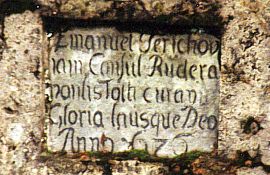 Emanuel Jerichov
iam Consul Rudera
pontis Tolli curavit
Gloria Lausque Deo
Anno 1636